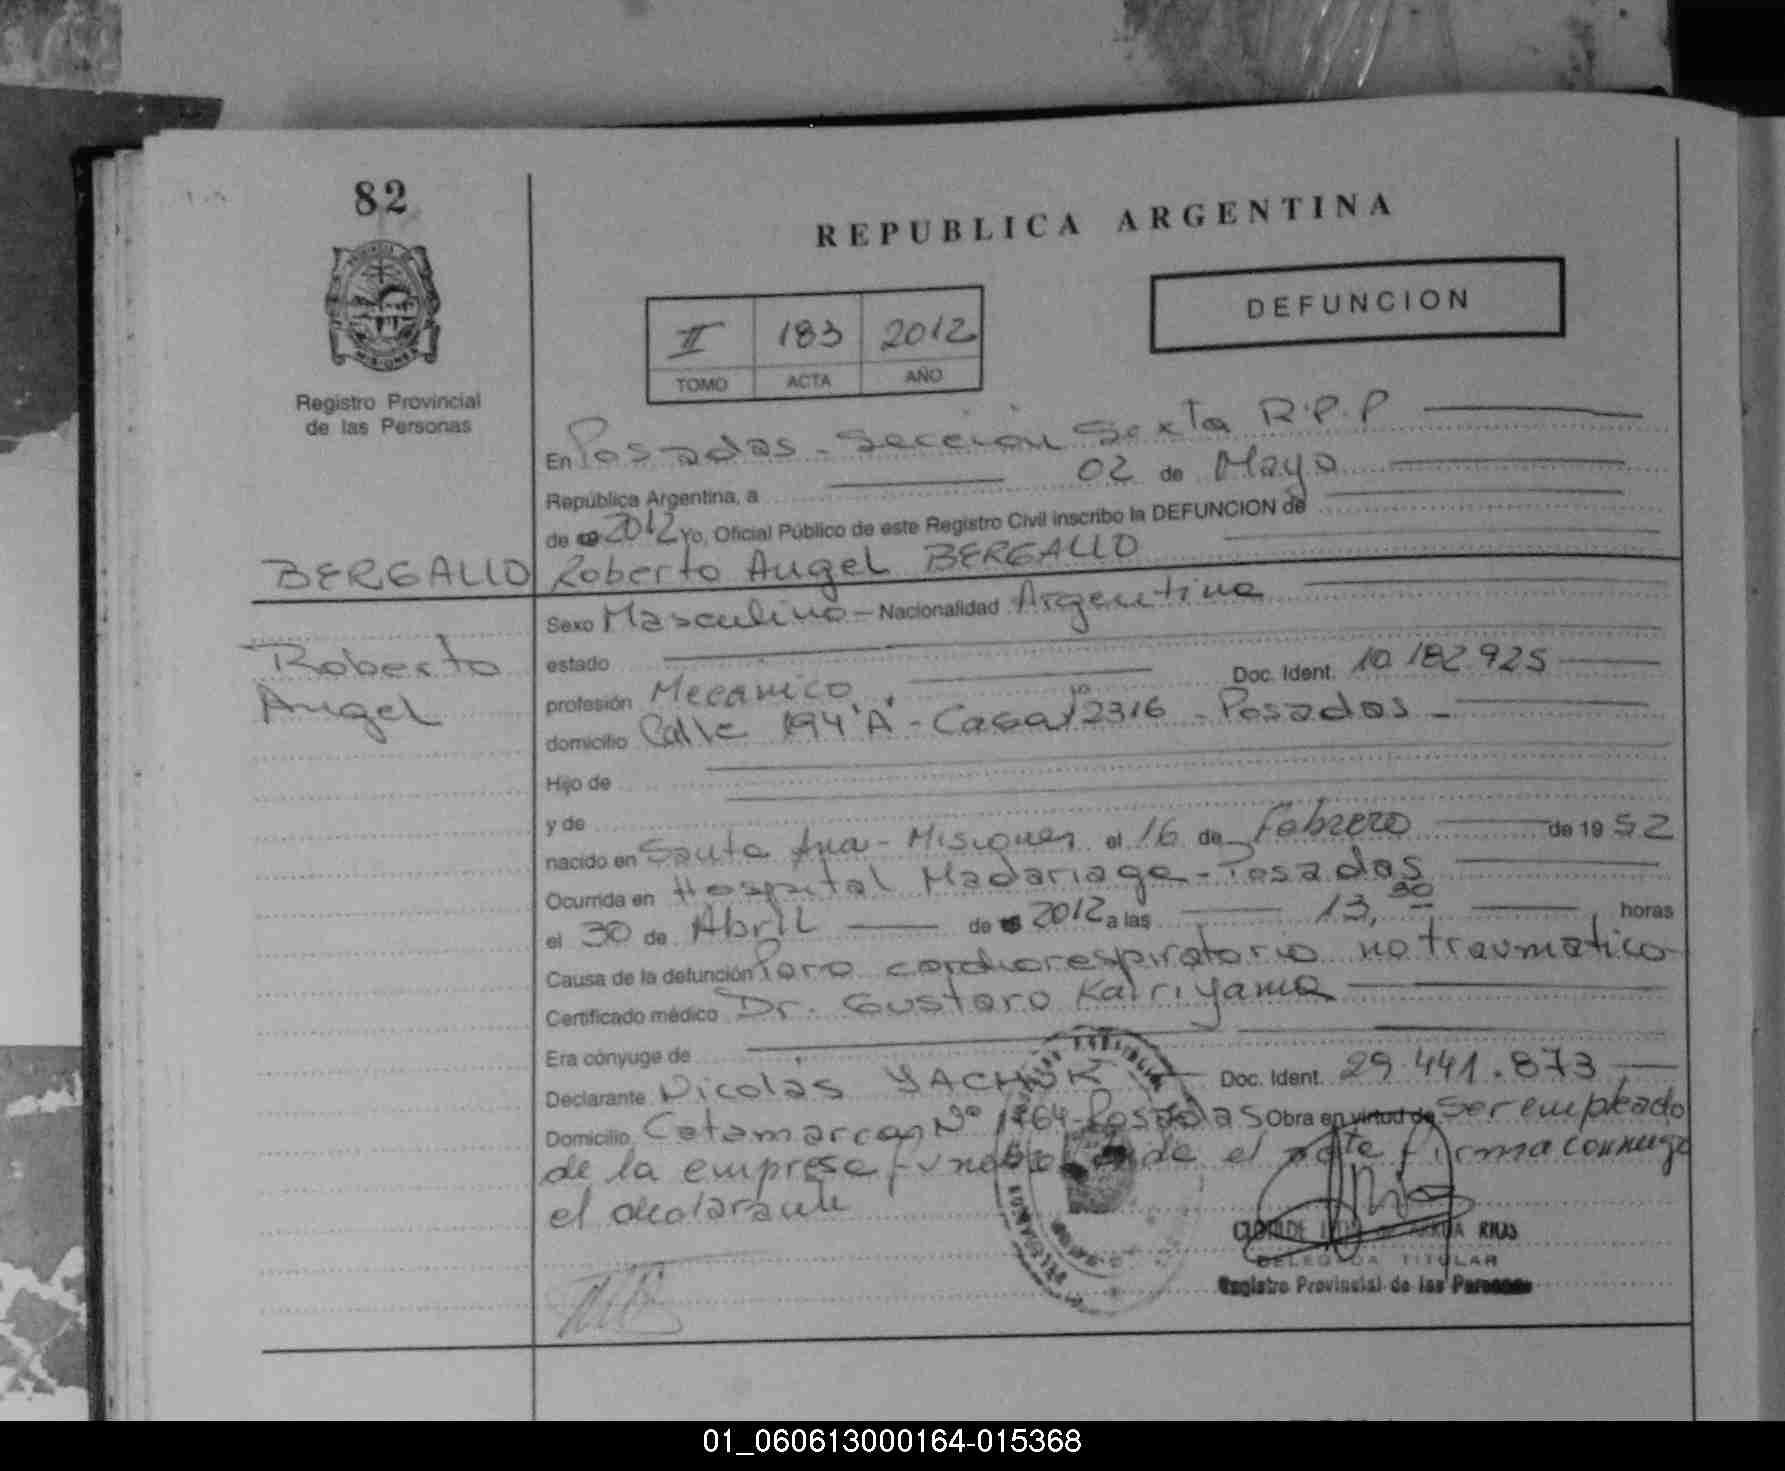 82
REPUBLICA ARGENTINA
DEFUNCION
II 183 2012
TOMO ACTA AÑO
Registro Provincial
de las Personas
En Posadas - Sección Sexta R.P.P
República Argentina, a 02 de Mayo
de 2012 Yo, Oficial Público de este Registro Civil inscribo la DEFUNCION de
BERGALLO Roberto Angel BERGALLO
Sexo Masculino - Nacionalidad Argentina
Roberto
Angel
estado
profesión Mecanico Doc. Ident. 10.182.925
domicilio Calle 194 "A" - Casa Nº 2316 - Posadas -
Hijo de
y de
nacido en Santa Ana - Misiones el 16 de Febrero de 1952
Ocurrida en Hospital Madariaga - Posadas
el 30 de Abril de 2012 a las 13,30 horas
Causa de la defunción Paro cardiorespiratorio no traumatico
Certificado médico Dr. Gustavo Kairiyama
Era cónyuge de
Declarante Nicolás YACHUK Doc. Ident. 29.441.873
Domicilio Catamarca Nº Posadas Obra en virtud de ser empleado
de la empresa el firma conmigo
el declarante
RIOS
DELEGADA TITULAR
Registro Provincial de las Personas
MISIONES
01_060613000164-015368